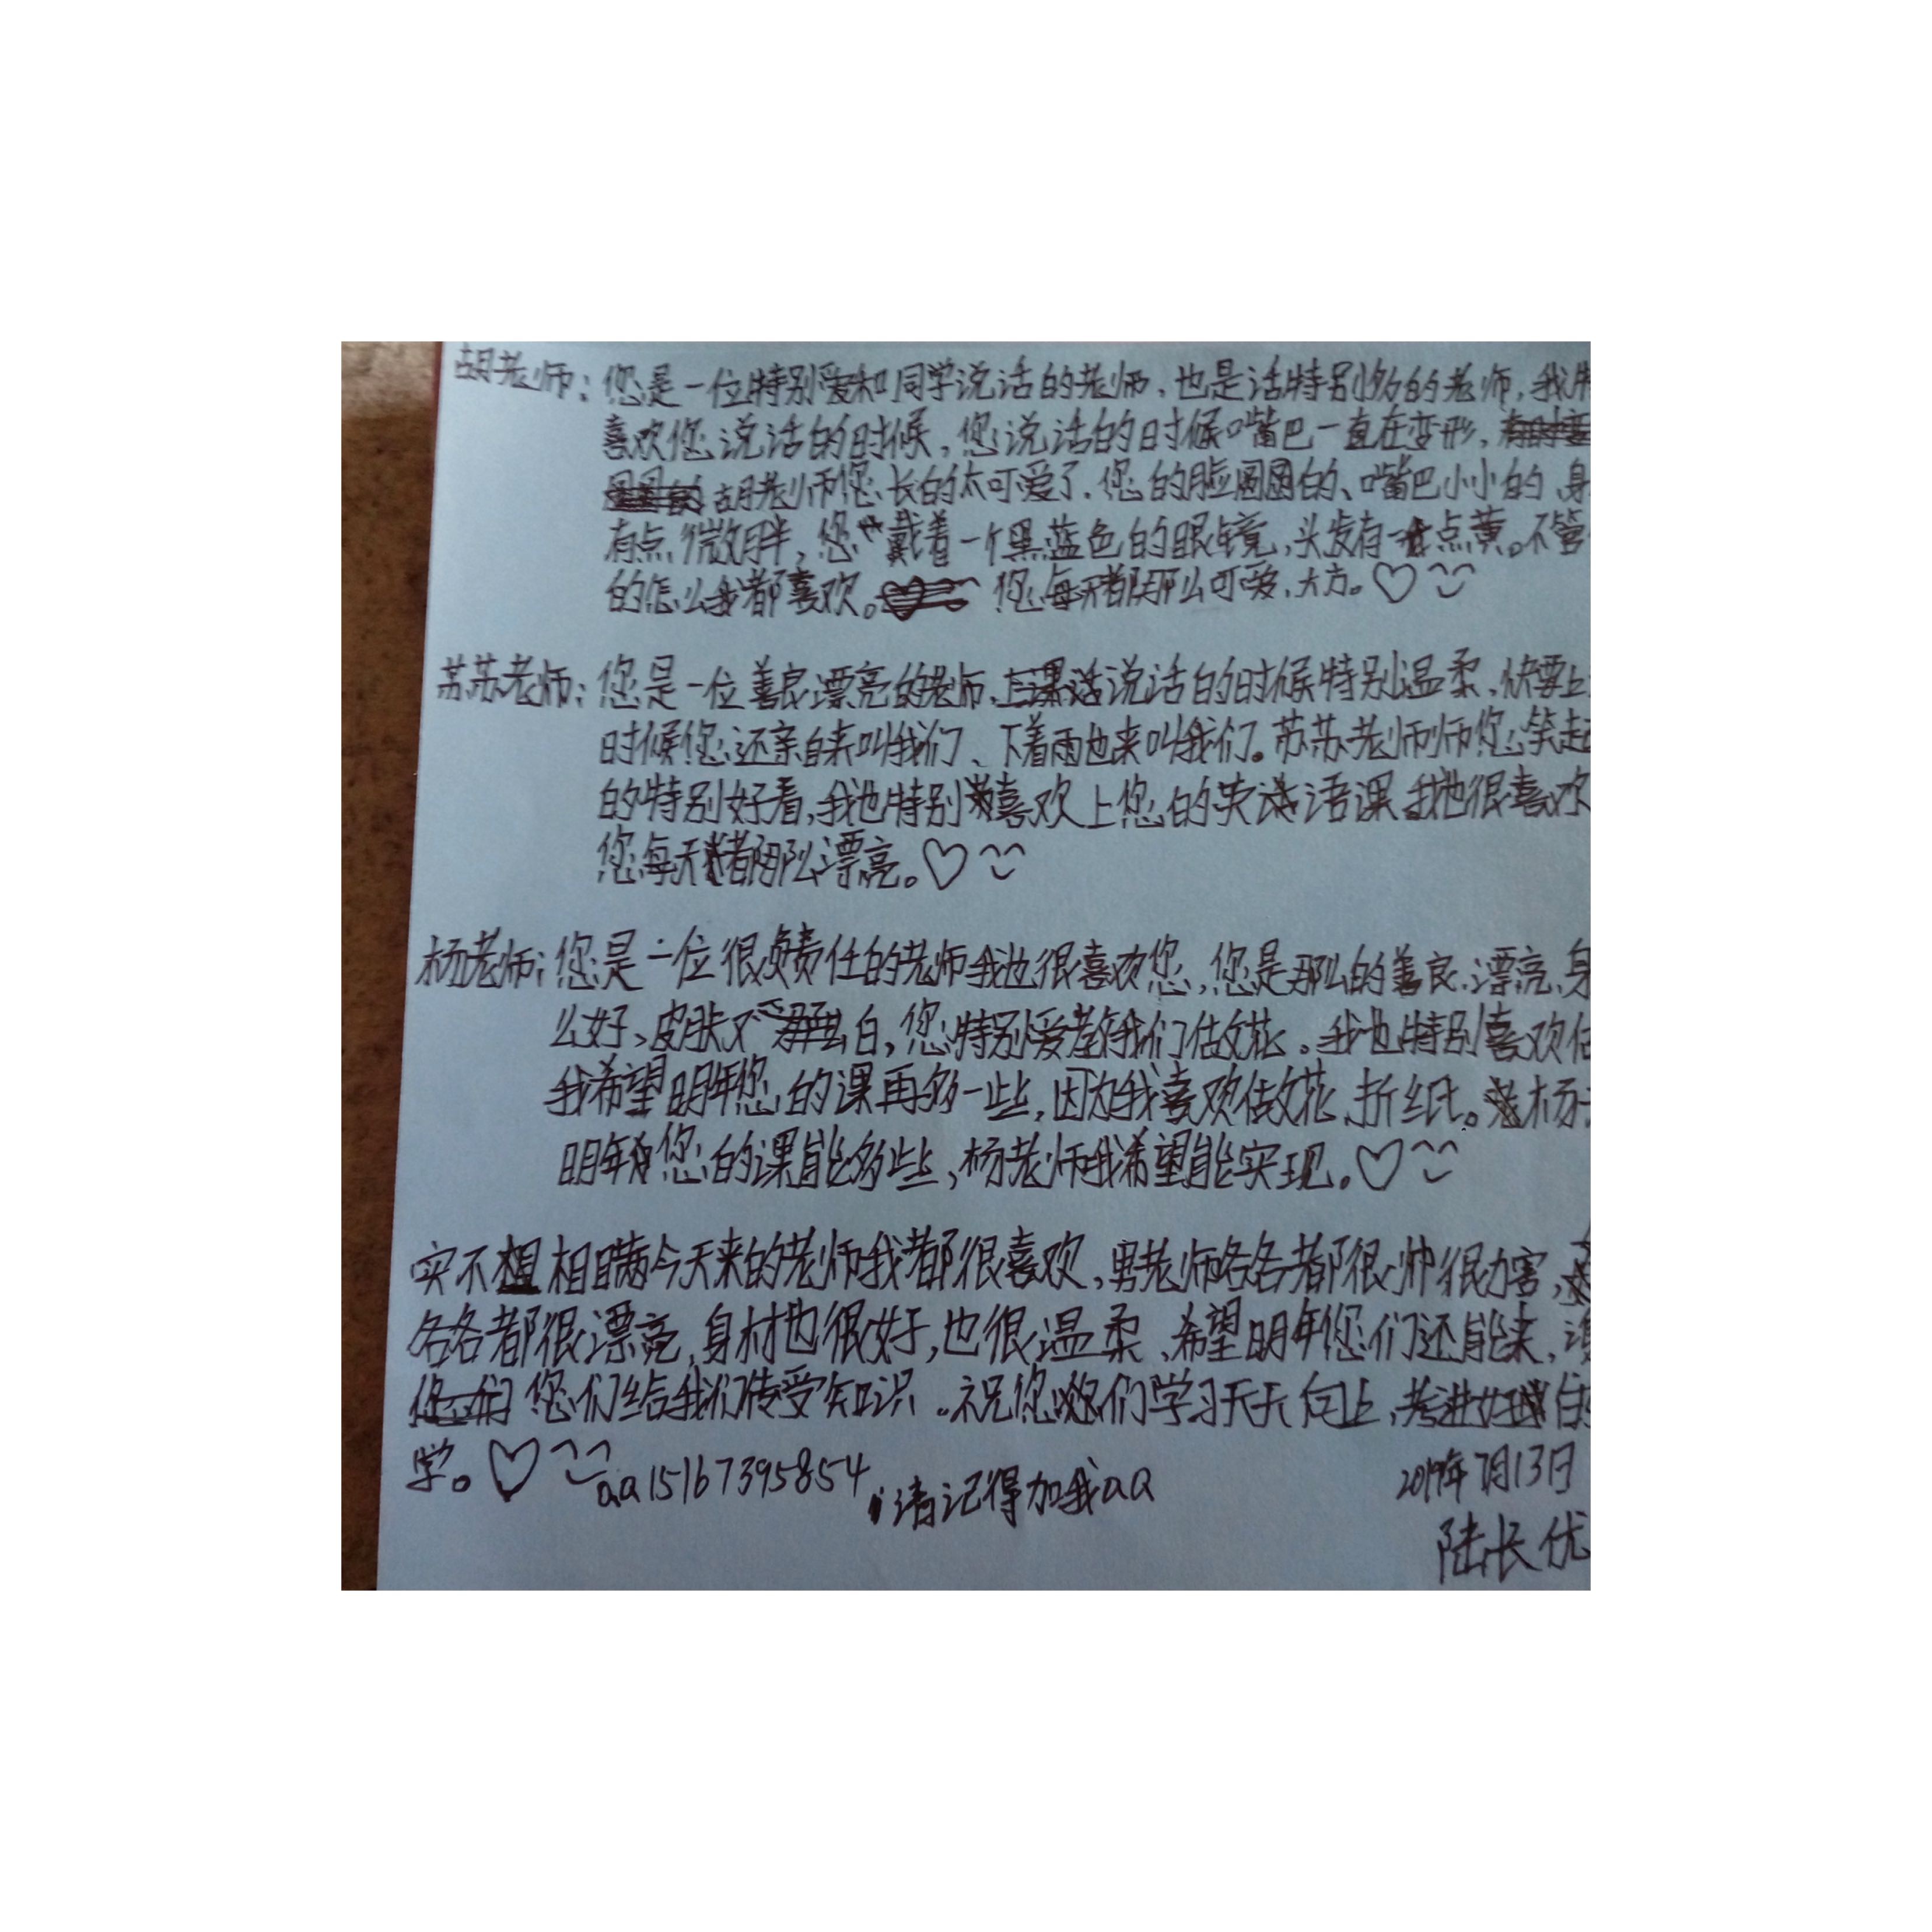 胡老师：您是一位特别爱和同学说话的老师，也是话特别多的老师，我
喜欢您说话的时候，您说话的时候嘴巴一直在变形，
胡老师您长的太可爱了，您的脸圆圆的、嘴巴小小的、身
有点微胖，您戴着一个黑蓝色的眼镜，头发有点黄。不管
的怎么我都喜欢。您每天都那么可爱、大方。♡
苏苏老师：您是一位善良漂亮的老师，说话的时候特别温柔，快要上
时候您还亲自来叫我们、下着雨也来叫我们。苏苏老师师您笑起
的特别好看，我也特别喜欢上您的英语课，我也很喜欢
您每天都那么漂亮。♡
杨老师：您是一位很负责任的老师我也很喜欢您，您是那么的善良、漂亮、身
么好、皮肤又白，您特别爱教我们做花。我也特别喜欢
我希望明年您的课再多一些，因为我喜欢做花、折纸。杨
明年您的课能多些，杨老师我希望能实现。♡
实不相瞒今天来的老师我都很喜欢，男老师各各都很帅很力害，
各各都很漂亮，身材也很好，也很温柔、希望明年您们还能来，
您们给我们传受知识。祝您们学习天天向上，考进好
学。♡
qq15167395854，请记得加我qq
2019年7月13日
陆长优